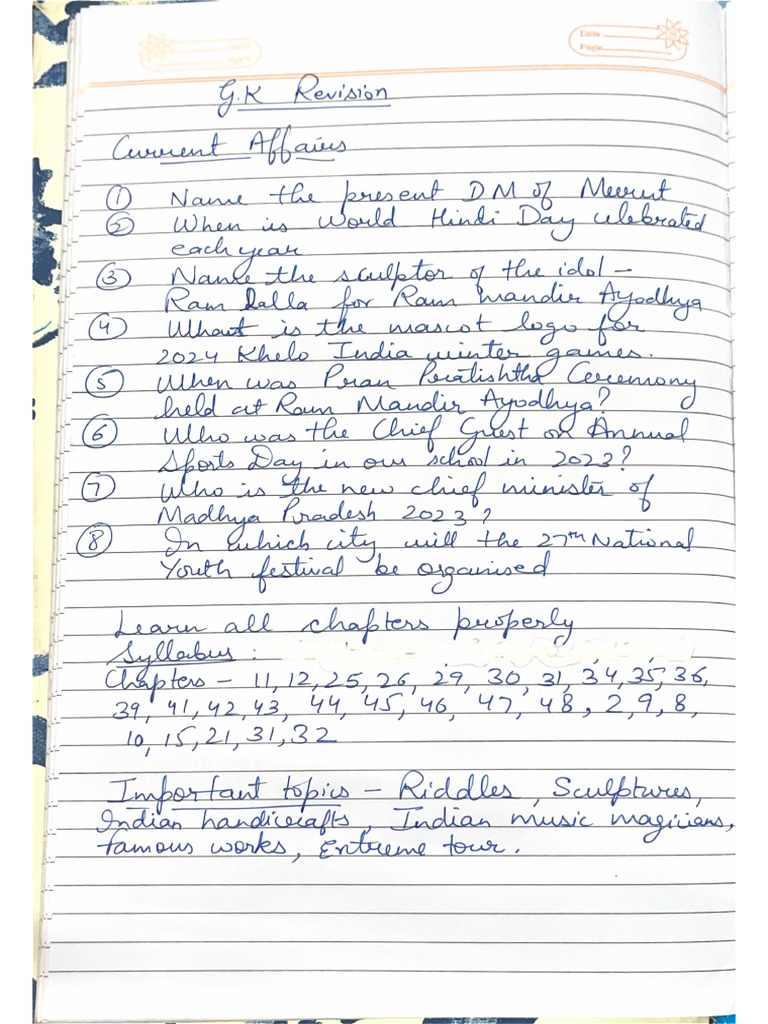 Date
Page
G.K Revision
Current Affairs
① Name the present DM of Meerut
② When is World Hindi Day celebrated
each year
③ Name the sculptor of the idol -
Ram Lalla for Ram Mandir Ayodhya
④ What is the mascot logo for
2024 Khelo India winter games.
⑤ When was Pran Pratishtha Ceremony
held at Ram Mandir Ayodhya?
⑥ Who was the Chief Guest on Annual
Sports Day in our school in 2023?
⑦ Who is the new chief minister of
Madhya Pradesh 2023?
⑧ In which city will the 27th National
Youth festival be organised
Learn all chapters properly
Syllabus :
Chapters - 11, 12, 25, 26, 29, 30, 31, 34, 35, 36,
39, 41, 42, 43, 44, 45, 46, 47, 48, 2, 9, 8,
10, 15, 21, 31, 32
Important topics - Riddles, Sculptures,
Indian handicrafts, Indian music magicians,
famous works, Extreme tour.